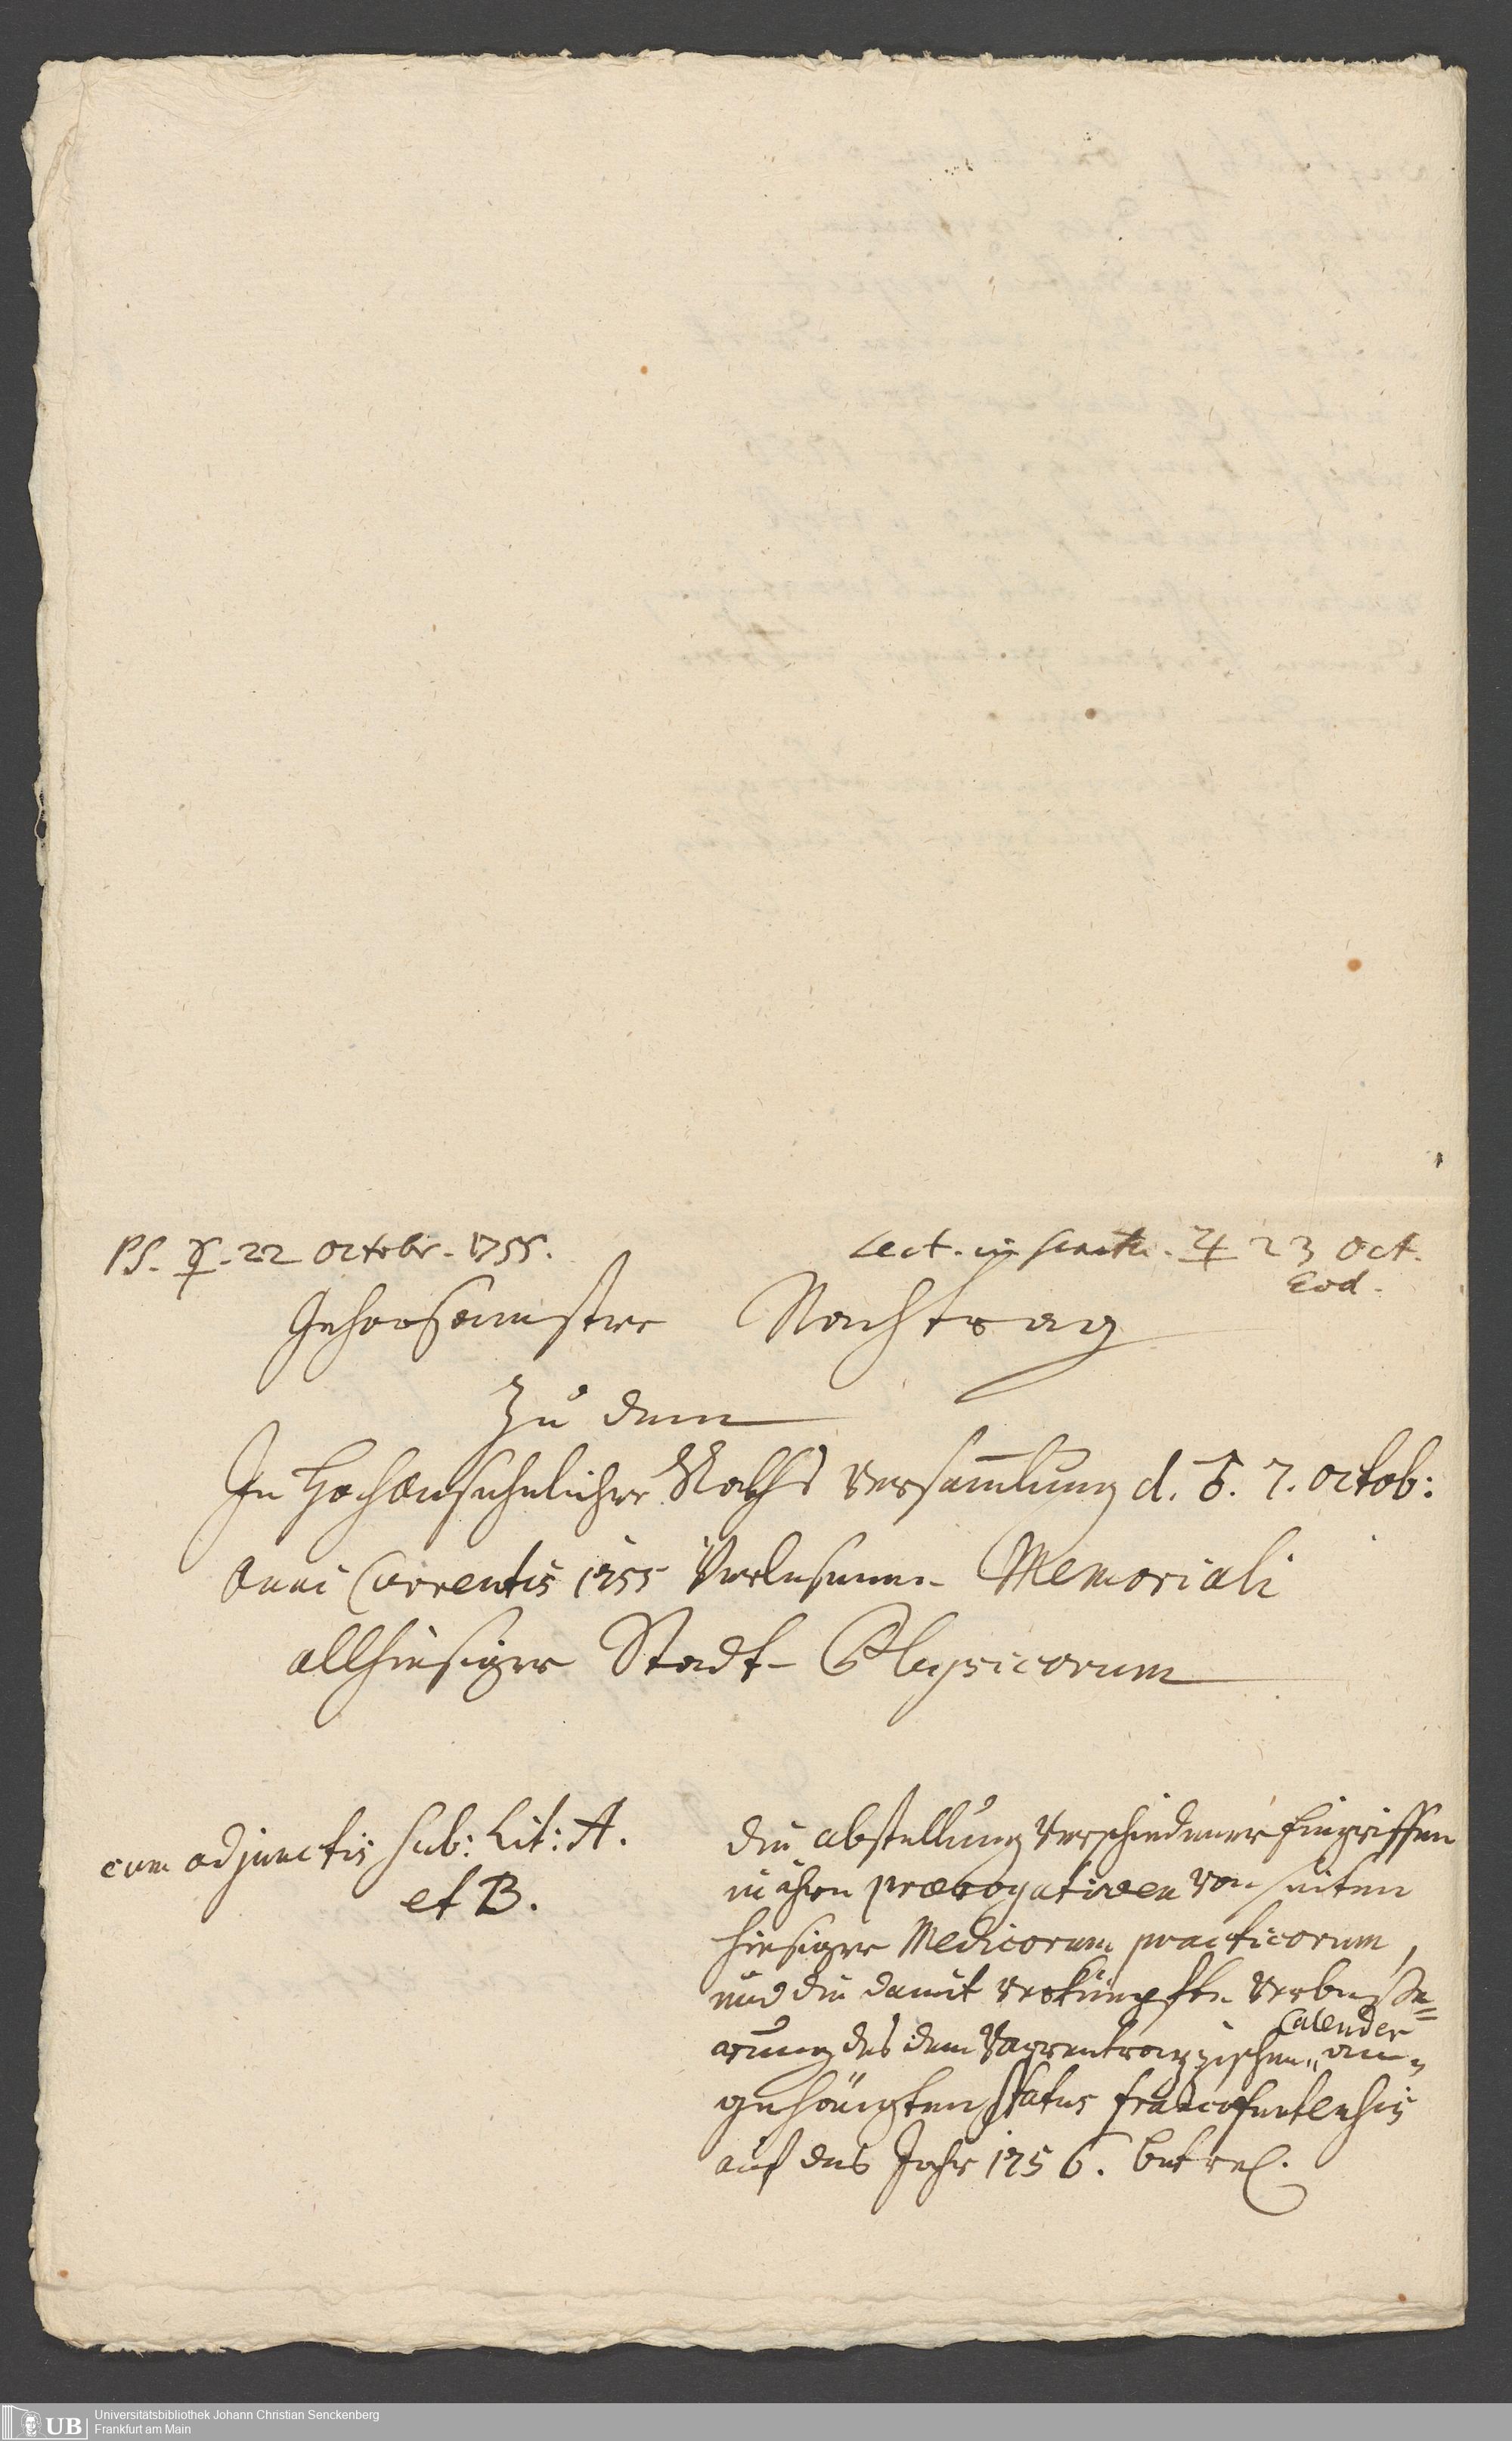 PS. ☿. 22 Octobr. 1755.
Lect. in Senatu. ♃ 23 Oct.
Eod.
Gehorsamster Nachtrag
Zu dem
In Hochansehnlicher Raths Versam̄lung d. 7. Octob:
Anni Currentis 1755 Verlesenen Memoriali
allhiesiger Stadt-Physicorum
cum adjunctis sub: Lit: A.
et B.
die abstellung Verschiedener Eingriffen
in ihre praerogativen von seiten
hiesiger Medicorum practicorum,
und die damit verknüpfte Verbesse=
rung des dem Varrentrappischen Calender an„
gehängten Status francofurtensis
auf das Jahr 1756. betref.
UB Universitätsbibliothek Johann Christian Senckenberg
Frankfurt am Main